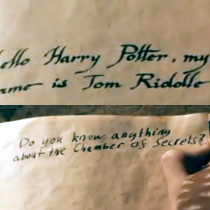 ello Harry Potter, my
ame is Tom Riddle
Do you know anything
about the Chamber of Secrets?